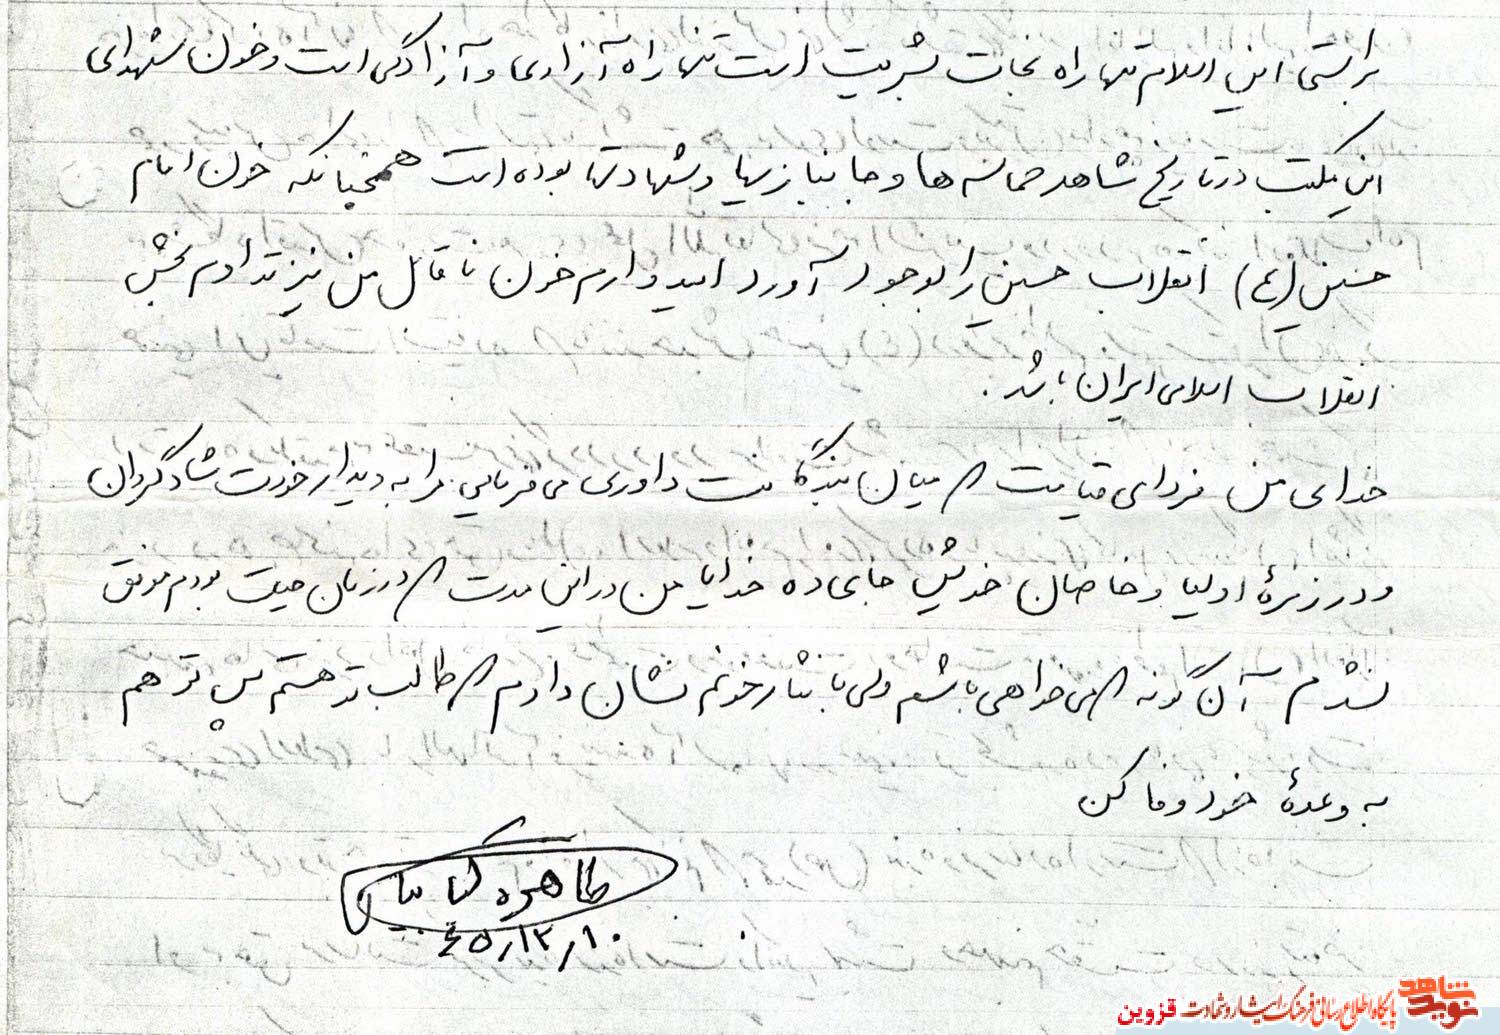 براستی این اسلام تنها راه نجات بشریت است تنها راه آزادی و آزادگی است و خون شهدای
این مکتب در تاریخ شاهد حماسه ها و جانبازیها و شهادتها بوده است همچنانکه خون امام
حسین (ع) انقلاب حسین را بوجود آورد امیدوارم خون ناقابل من نیز تداوم بخش
انقلاب اسلامی ایران باشد.
خدای من فردای قیامت که میان بندگانت داوری می فرمایی مرا به دیدار خودت شاد گردان
و در زمرهٔ اولیا و خاصان خویش جای ده خدایا من در این مدت که در زمان حیات بودم موفق
نشدم آن گونه که می خواهی باشم ولی با نثار خونم نشان دادم که طالب تو هستم پس تو هم
به وعدهٔ خود وفا کن
طاهره
۶۵/۱۲/۱۰
نوید شاهد
پایگاه اطلاع رسانی فرهنگ ایثار و شهادت قزوین